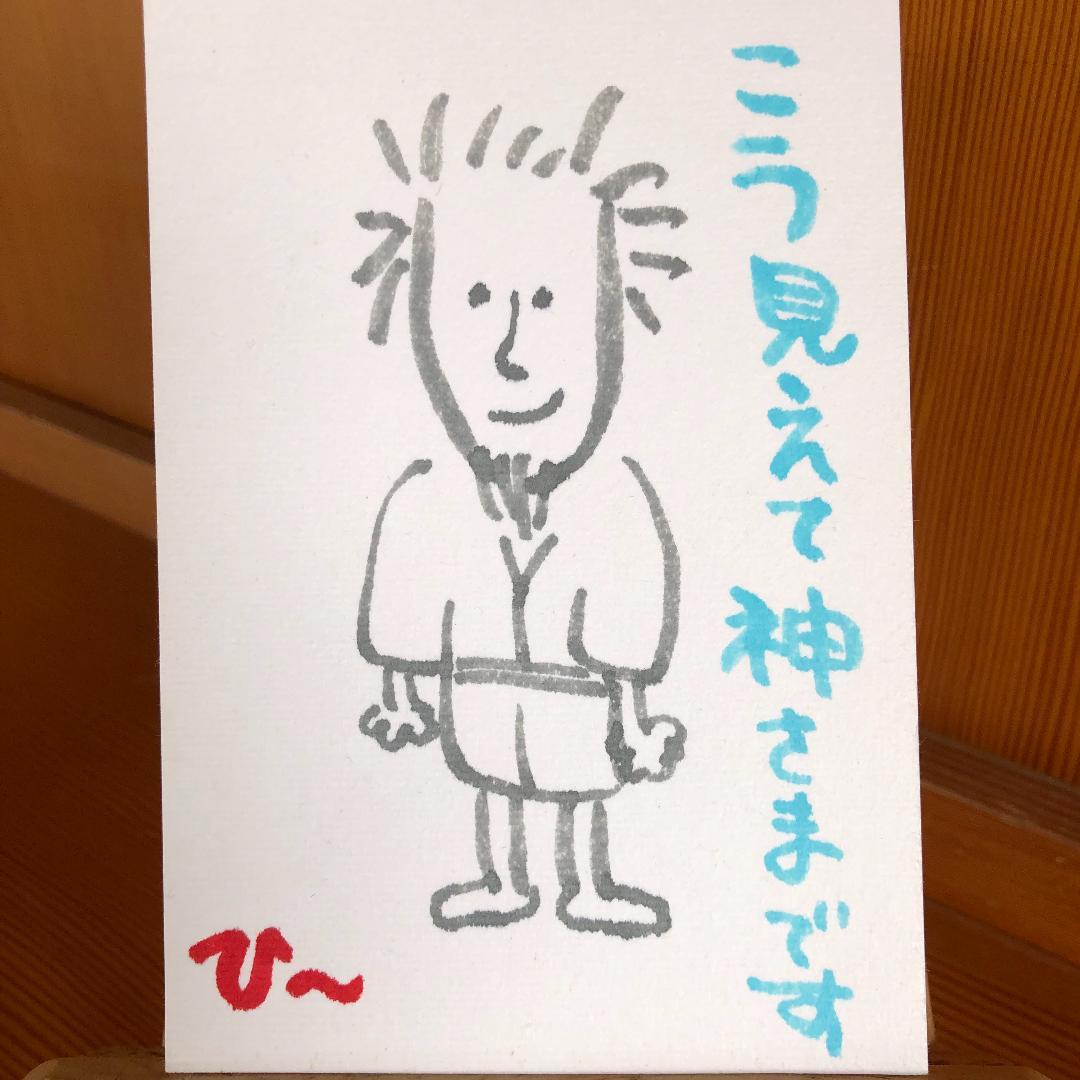 こう見えて神さまです
ひ〜